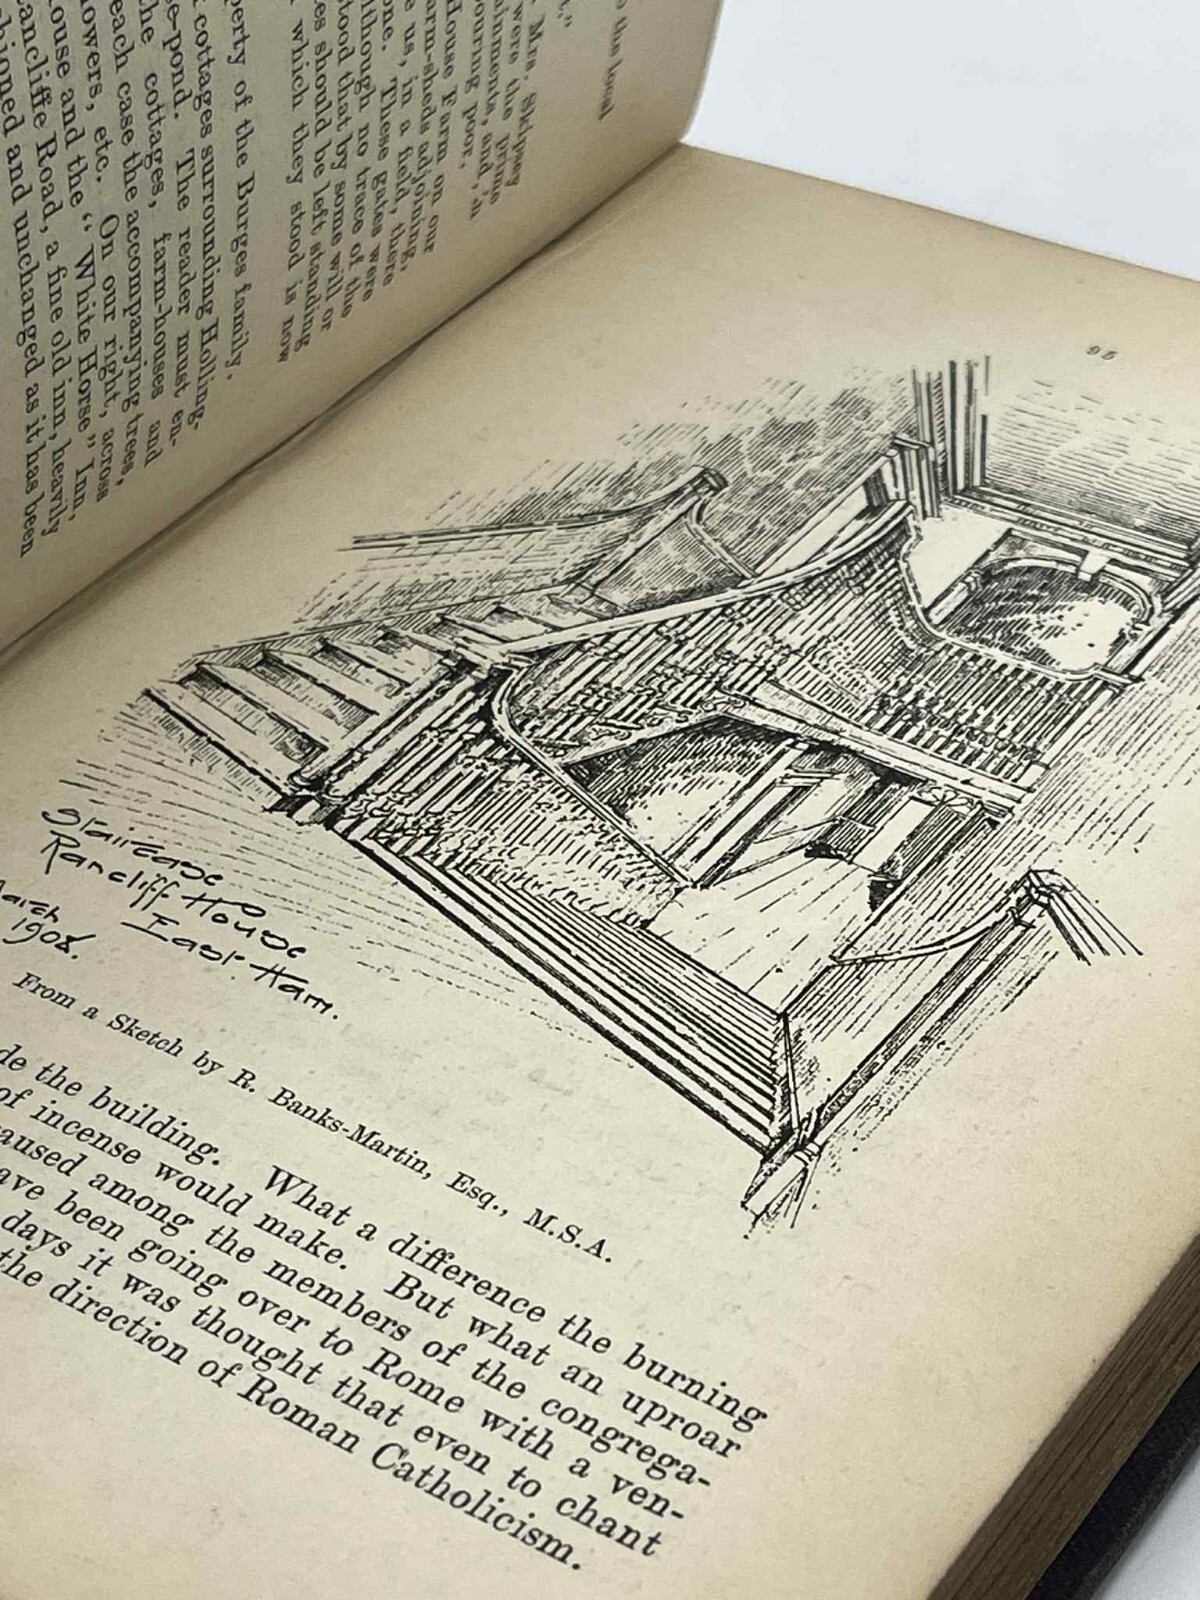 o the local
,"
Mrs. Skipsey
were the prime
alments, and, 'in
ouring poor.
House Farm on our
arm-sheds adjoining,
e us, in a field, there
ne. These gates were
lthough no trace of the
stood that by some will or
es should be left standing
which they stood is now
perty of the Burges family.
cottages surrounding Holling-
se-pond. The reader must en-
the cottages, farm-houses and
each case the accompanying trees,
lowers, etc. On our right, across
ouse and the "White Horse" Inn,
ancliffe Road, a fine old inn, heavily
shioned and unchanged as it has been
95
Staircase
Rancliff House
East Ham.
March
1908.
From a Sketch by R. Banks-Martin, Esq., M.S.A.
de the building. What a difference the burning
of incense would make. But what an uproar
aused among the members of the congrega-
ave been going over to Rome with a ven-
days it was thought that even to chant
the direction of Roman Catholicism.